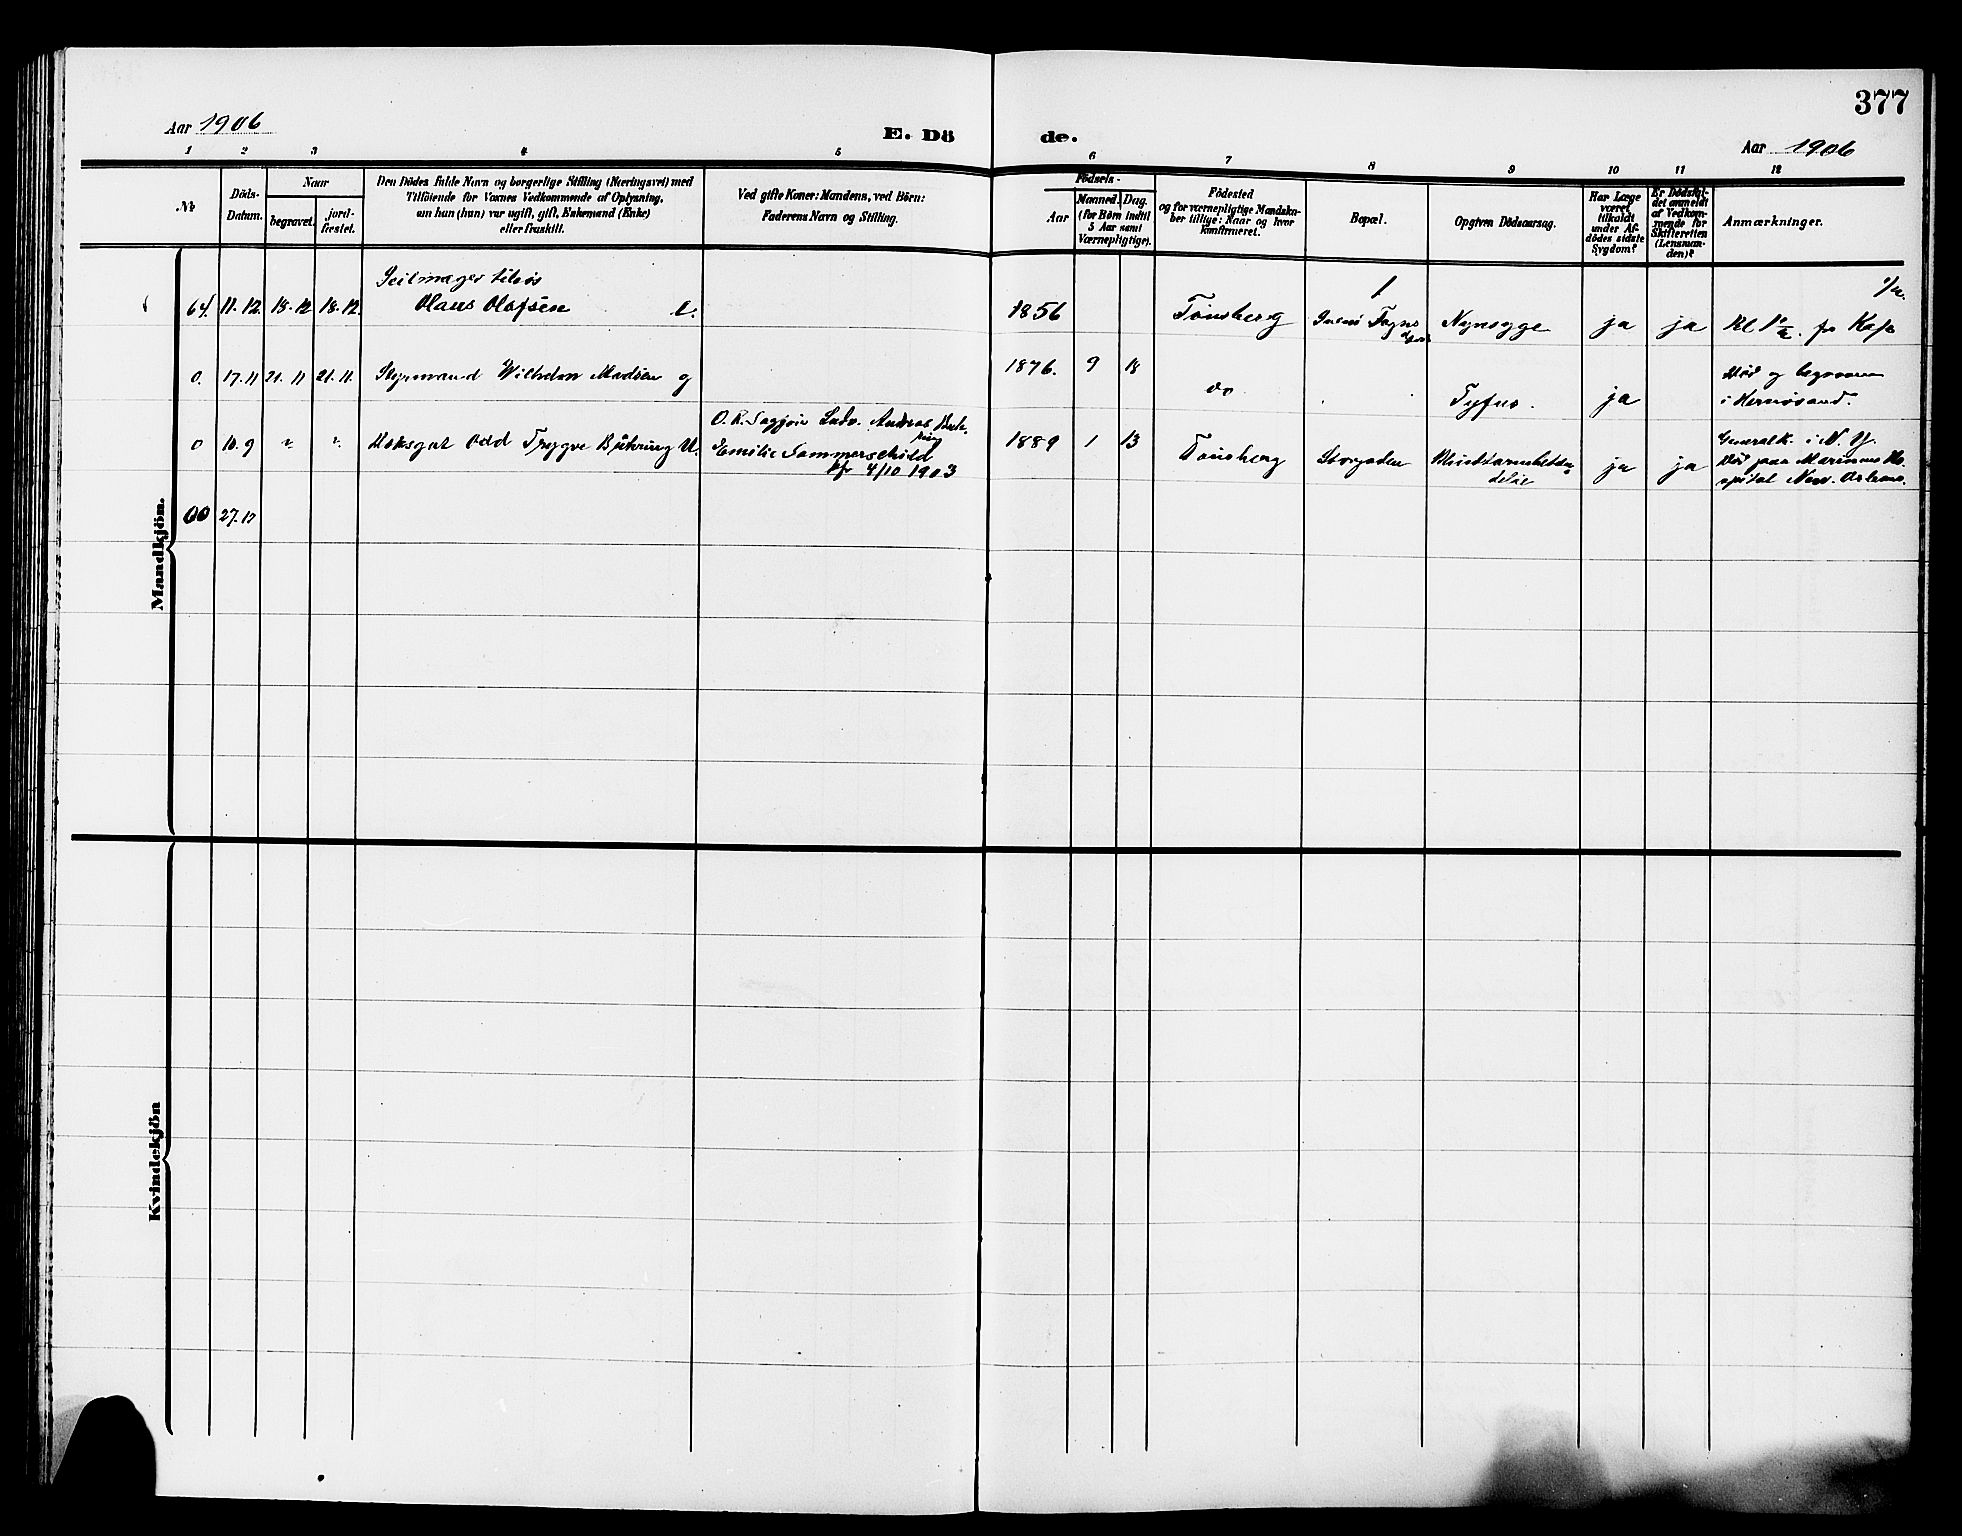 377
Aar 1906
E. Dö
de.
Aar 1906
1 2 3 4 5 6 7 8 9 10 11 12
№
Döds-
Datum.
Naar
begravet.
jord-
fæstet.
Den Dödes fulde Navn og borgerlige Stilling (Næringsvei) med
Tilföiende for Voxnes Vedkommende af Oplysning,
om han (hun) var ugift, gift, Enkemand (Enke)
eller fraskilt.
Ved gifte Koner: Mandens, ved Börn:
Faderens Navn og Stilling.
Födsels-
Aar
Maaned. Dag.
(for Börn indtil
5 Aar samt
Værnepligtige).
Födested
og for værnepligtige Mandska-
ber tillige: Naar og hvor
konfirmeret.
Bopæl.
Opgiven Dödsaarsag.
Har Læge
været
tilkaldt
under Af-
dödes sidste
Sygdom?
Er Dödsfal-
det anmeldt
af Vedkom-
mende for
Skifteretten
(Lensman-
den)?
Anmærkninger.
Mandkjön.
Seilmager
64. 11.12 18.12 18.12. Olaus Olafsen e. 1856 Tönsberg Nyresyge ja ja
0. 17.11 21.11 21.11. Styrmand Wilhelm Madsen g 1876. 9 18 do Tyfus. ja
Död og begraven
i Hernösand.
0 10.9 " " Dæksgut Odd Trygve U.
Andreas
Emilie Sommerschild
4/10 1903
1889 1 13 Tönsberg Storgaden ja ja
Generalk. i N. Y.
Död paa Marinens Ho-
spital New Orleans.
00 27.12
Kvindekjön